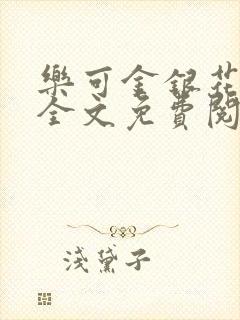 樂可金銀花
全文免費閱
淺黛子